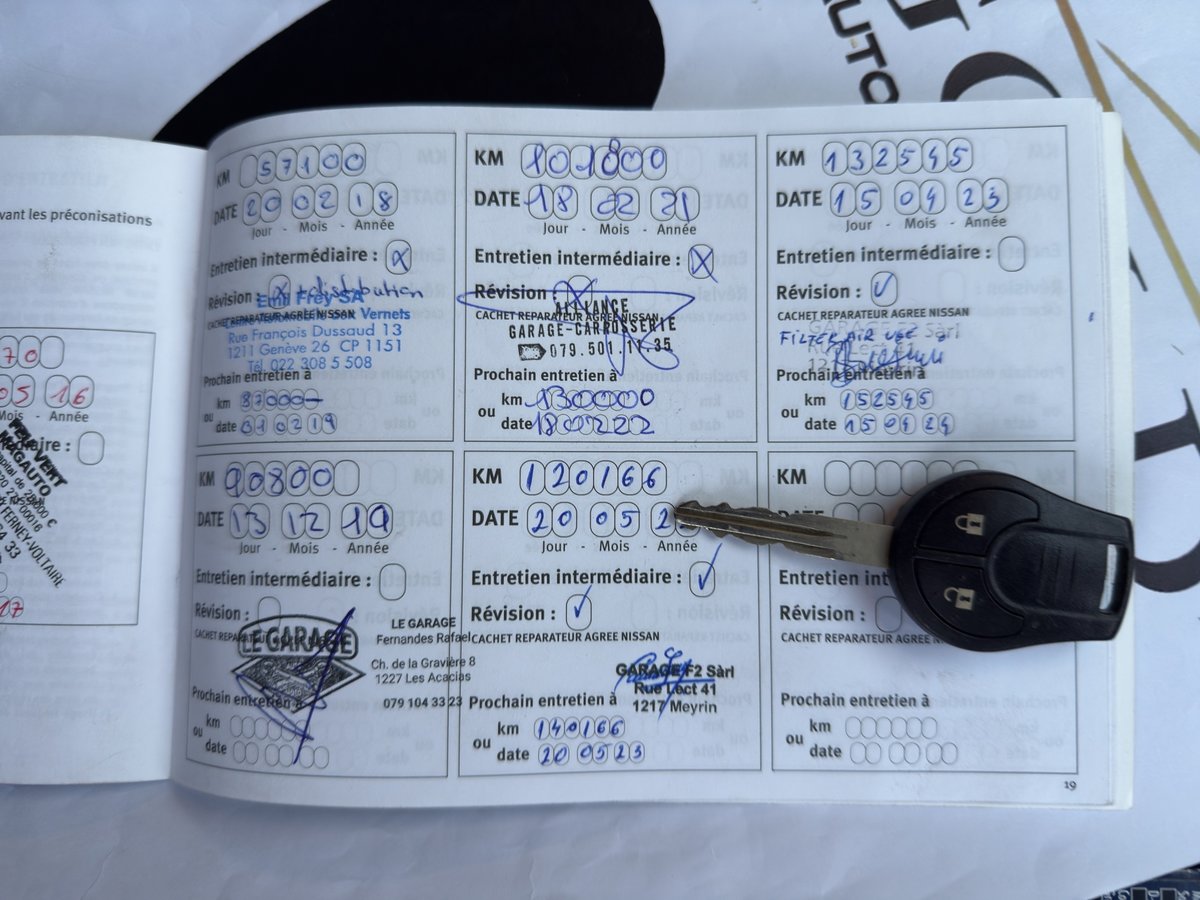 AUTO
vant les préconisations
70
05 16
Mois - Année
aire :
VERT
RAGAUTO
FERNEY-VOLTAIRE
17
KM 57100
DATE 20 02 18
Jour - Mois - Année
Entretien intermédiaire : X
Révision : X + distribution
Emil Frey SA
CACHET REPARATEUR AGREE NISSAN
Vernets
Rue François Dussaud 13
1211 Genève 26 CP 1151
Tél. 022 308 5 508
Prochain entretien à
km 87000
ou
date 010219
KM 101000
DATE 18 02 21
Jour - Mois - Année
Entretien intermédiaire : X
Révision : X
ALLIANCE
CACHET REPARATEUR AGREE NISSAN
GARAGE-CARROSSERIE
079.501.11.35
Prochain entretien à
km 130000
ou
date 180222
KM 132545
DATE 15 04 23
Jour - Mois - Année
Entretien intermédiaire :
Révision : ✓
CACHET REPARATEUR AGREE NISSAN
GARAGE F2 Sàrl
FILTER AIR
Prochain entretien à
km 152545
ou
date 150424
KM 90800
DATE 13 12 19
Jour - Mois - Année
Entretien intermédiaire :
Révision :
CACHET REPARATEUR
LE GARAGE
LE GARAGE
Fernandes Rafael
Ch. de la Gravière 8
1227 Les Acacias
079 104 33 23
Prochain entretien à
km
ou
date
KM 120166
DATE 20 05 2
Jour - Mois - Année
Entretien intermédiaire : ✓
Révision : ✓
CACHET REPARATEUR AGREE NISSAN
GARAGE F2 Sàrl
Rue Lect 41
1217 Meyrin
Prochain entretien à
km 140166
ou
date 200523
KM
DATE
Entretien int
Révision :
CACHET REPARATEUR AGREE N
Prochain entretien à
km
ou
date
19